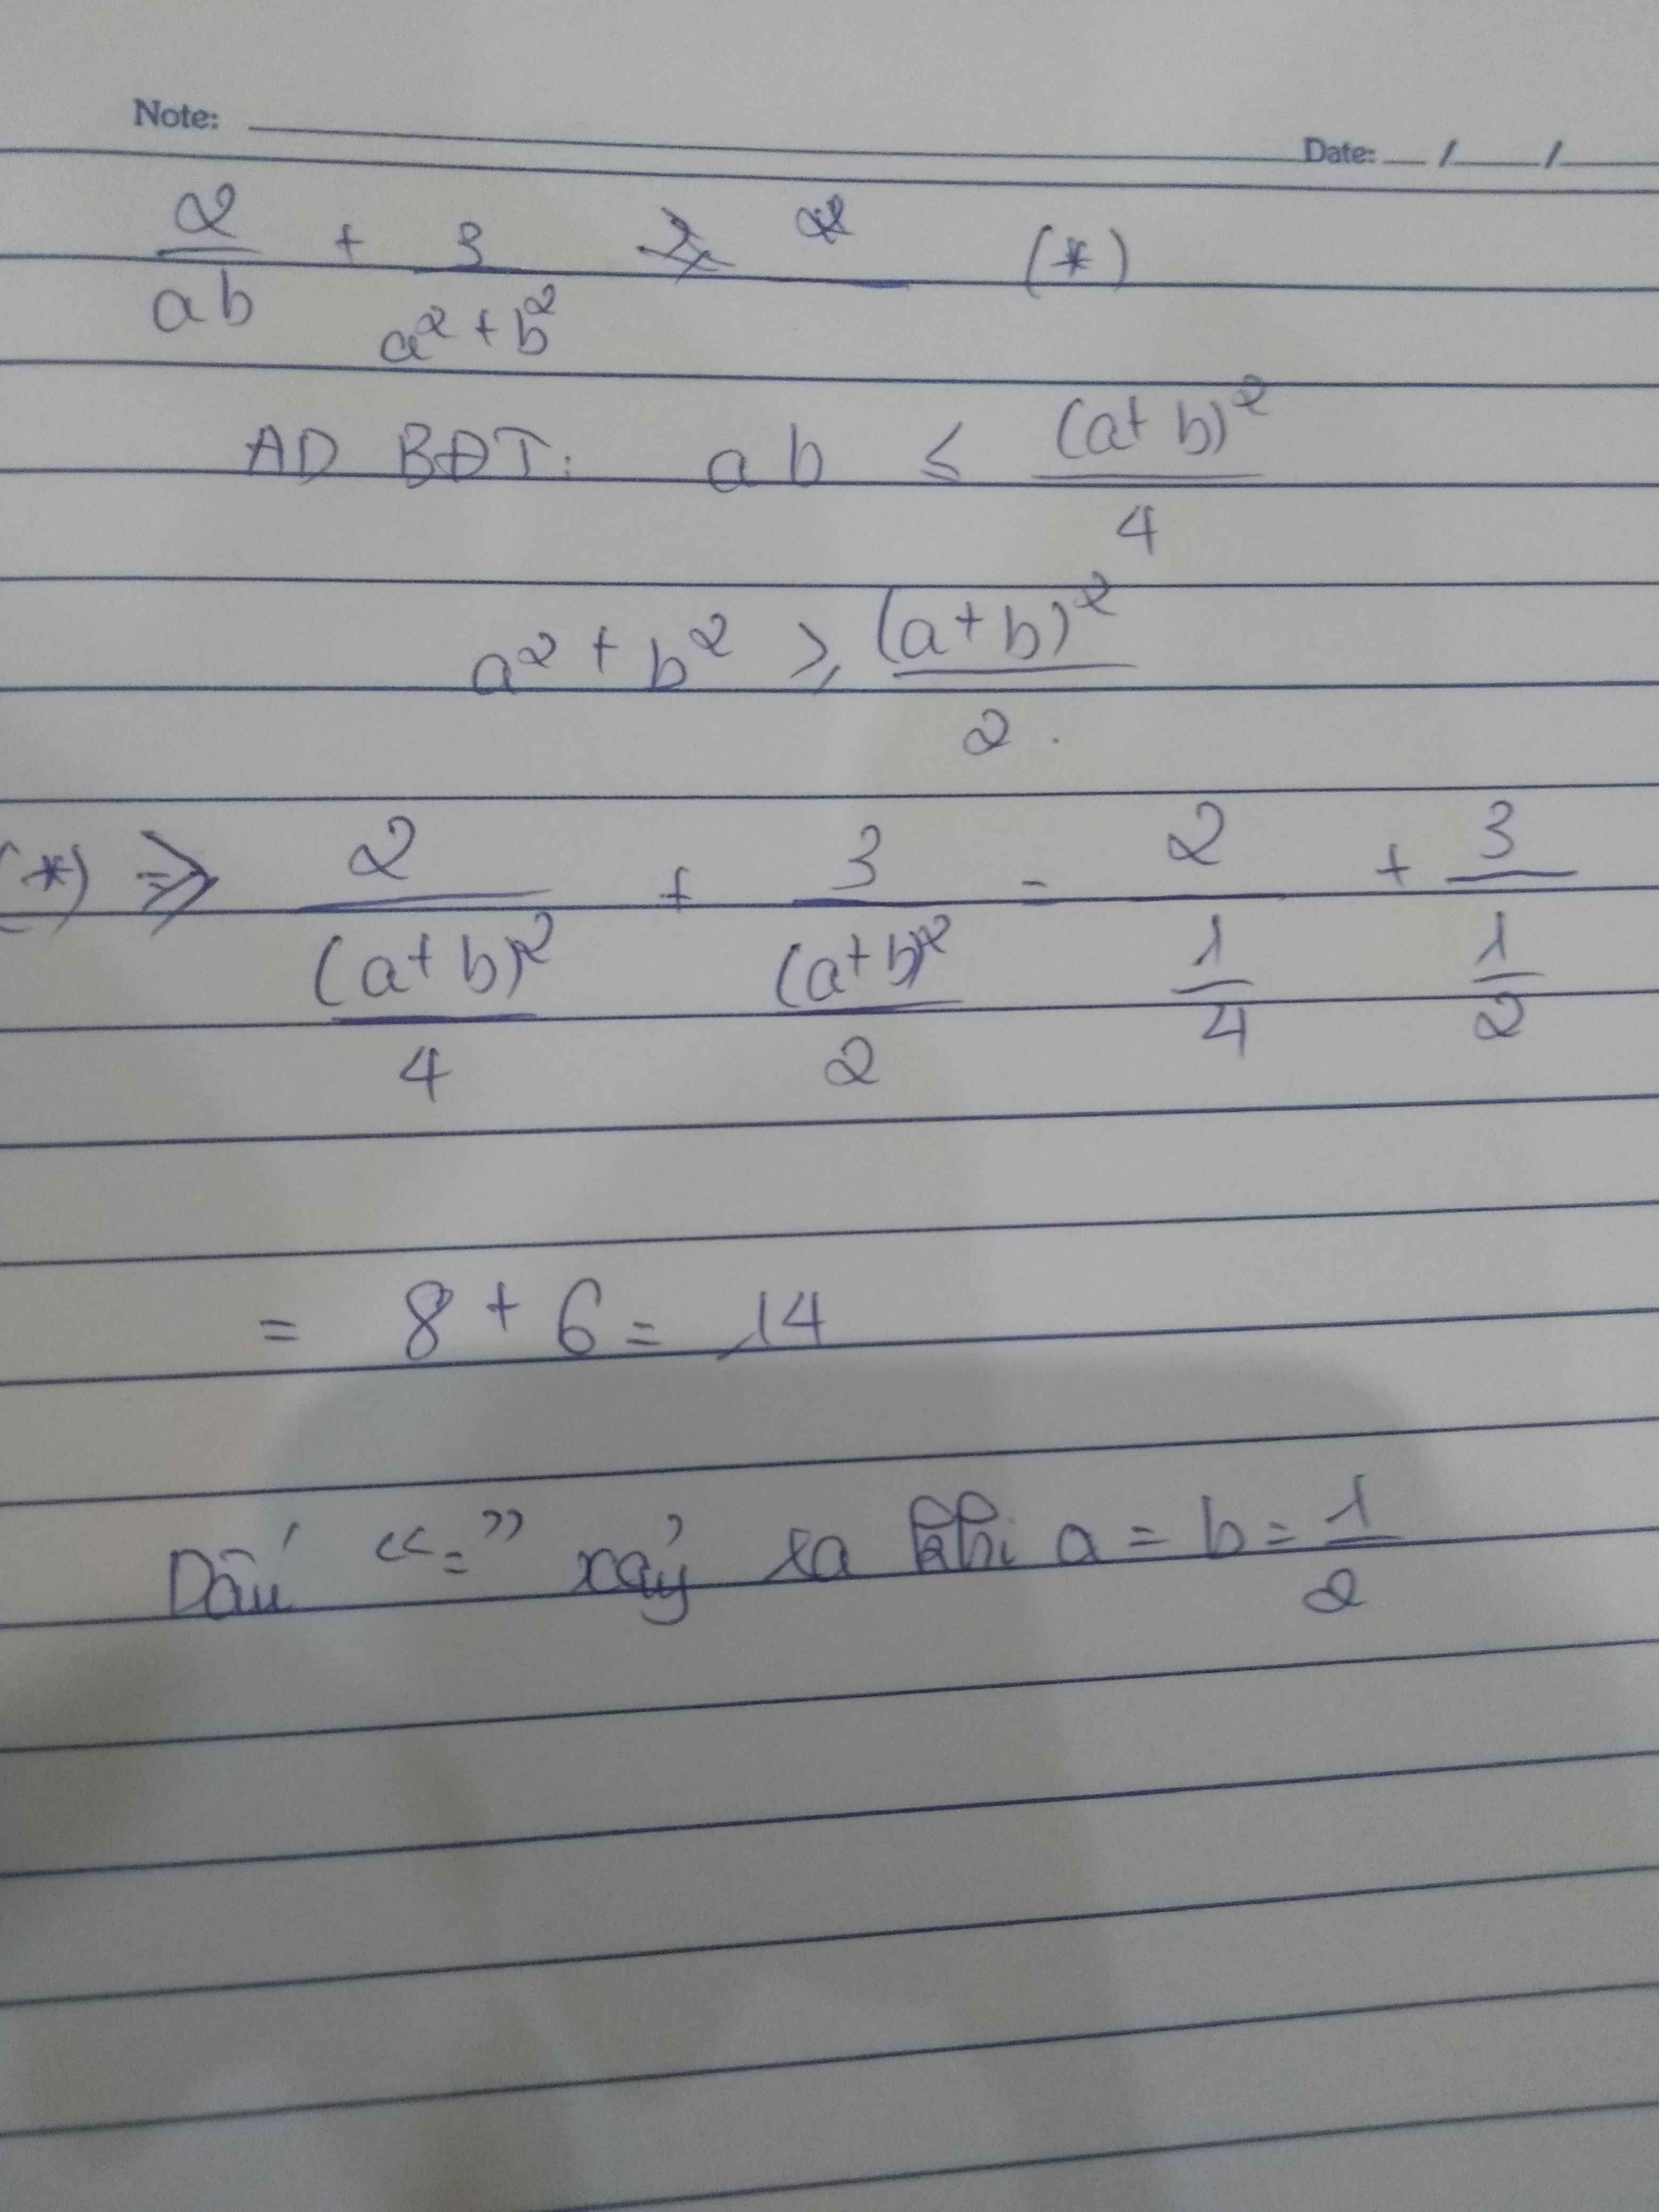 Note:
Date: / /
2/ab + 3/(a² + b²) ≥ (*)
AD BĐT: ab ≤ (a+b)²/4
a² + b² ≥ (a+b)²/2.
(*) ≥ 2/((a+b)²/4) + 3/((a+b)²/2) = 2/(1/4) + 3/(1/2)
= 8 + 6 = 14
Dấu "=" xảy ra khi a = b = 1/2